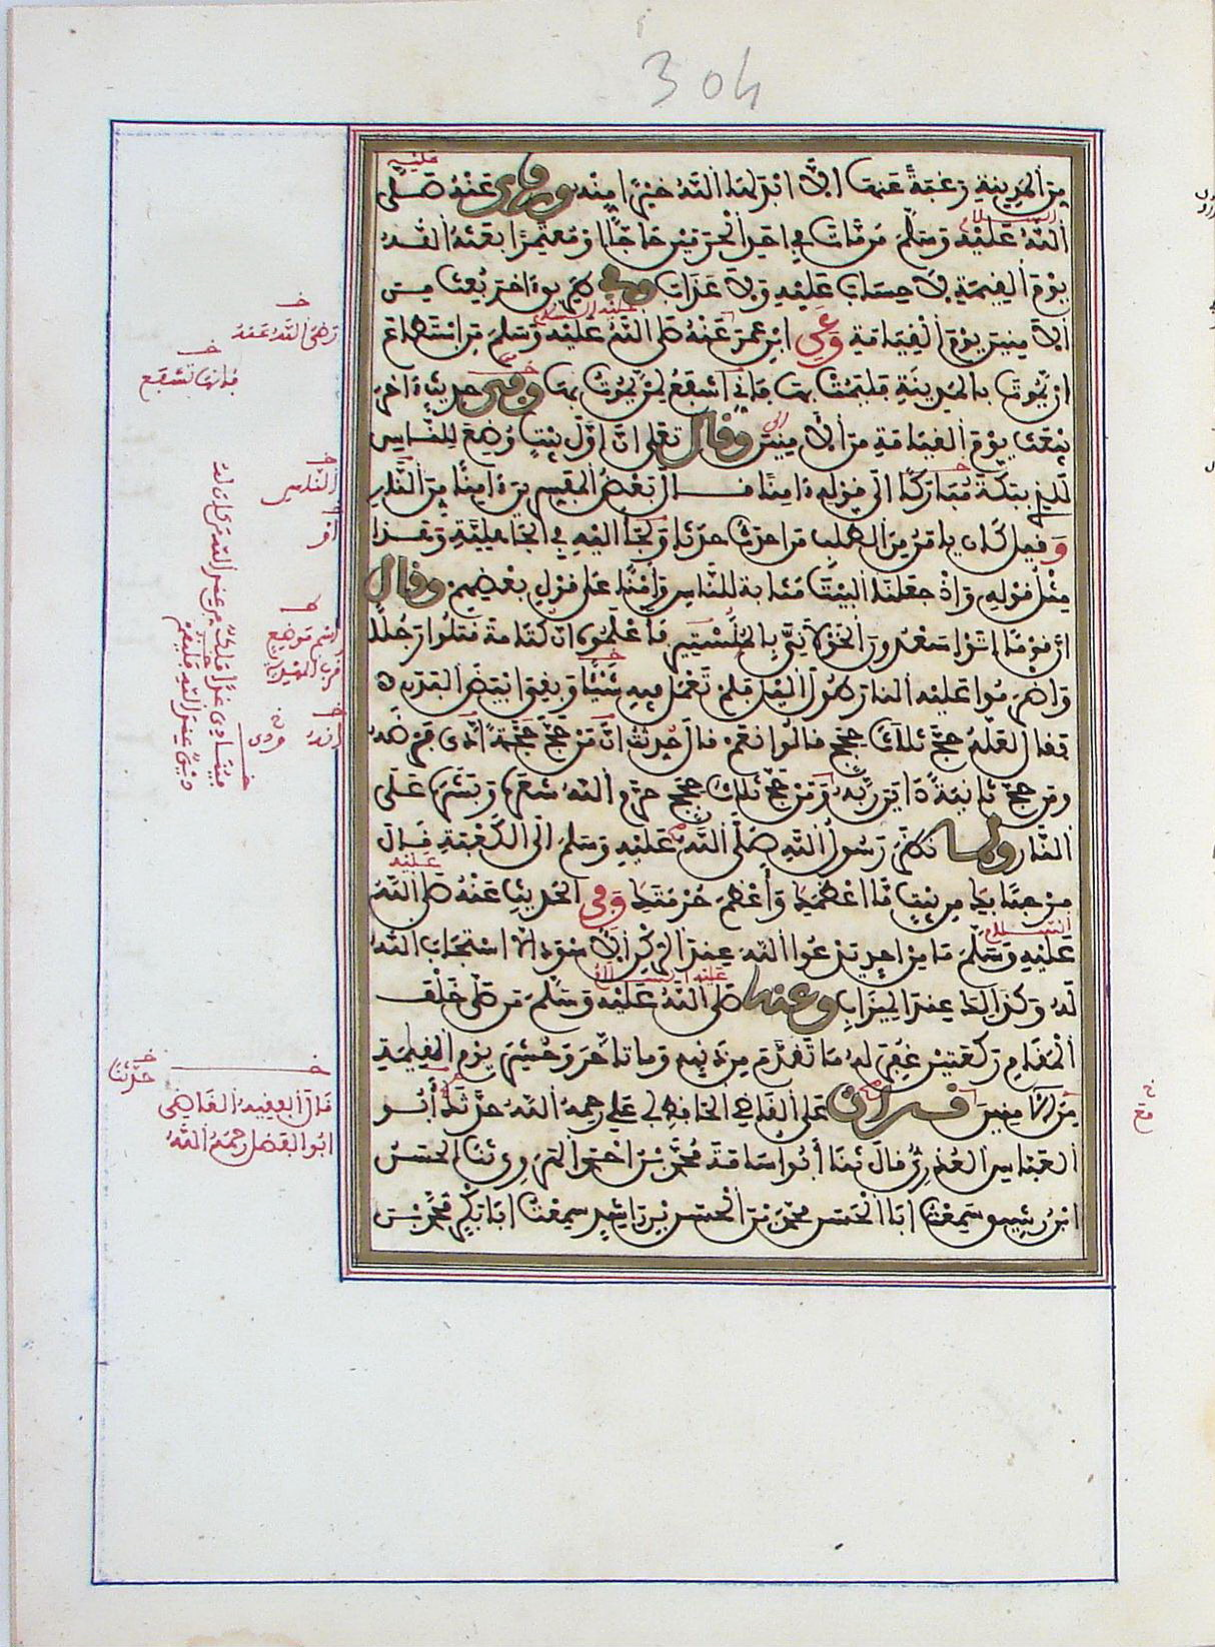 304
من المدينة رغبة عنها الا ابدلها الله خيرا منه وروي عنه صلى
عليه
الله عليه وسلم من مات في احد الحرمين حاجا او معتمرا بعثه الله
السلام
يوم القيمة لا حساب عليه ولا عذاب وفي طريق اخر بعث من
الامنين يوم القيامة وعن ابن عمر عنه صلى الله عليه وسلم من استطاع
عليه السلام
ان يموت بالمدينة فليمت بها فاني اشفع لمن يموت بها وفي حديث اخر
يبعث يوم القيامة من الامنين وقال تعلى ان اول بيت وضع للناس
للذي ببكة مباركا الى قوله ءامنا قال بعض المفسرين ءامنا من النار
وقيل كان يامن من الطلب من احدث حدثا ولجأ اليه في الجاهلية وهذا
مثل قوله واذ جعلنا البيت مثابة للناس وامنا على قول بعضهم وقال
ان قوما اتوا سعدون الخولاني بالمنستير فاعلموه ان كتامة قتلوا رجلا
واضرموا عليه النار طول اليل فلم تعمل فيه شيئا وبقي ابيض البدن
فقال لعله حج ثلاث حجج قالوا نعم قال حدثت ان من حج حجة ادى فرضه
ومن حج ثانية داين ربه ومن حج ثلاث حجج حرم الله شعره وبشره على
النار ولما نظر رسول الله صلى الله عليه وسلم الى الكعبة قال
مرحبا بك من بيت ما اعظمك واعظم حرمتك وفي الحديث عنه صلى الله
عليه
عليه وسلم ما من احد يدعوا الله عند الركن الاسود الا استجاب الله
السلام
له وكذلك عند الميزاب وعنه صلى الله عليه وسلم من صلى خلف
عليه السلام
المقام ركعتين غفر له ما تقدم من ذنبه وما تاخر وحشر يوم القيمة
من الامنين قرات على القاضي الحافظ ابي علي رحمه الله حدثك أبو
العباس العذري قال ثنا أبو اسامة محمد بن احمد الهروي ثنا الحسن
ابن رشيق سمعت ابا الحسن محمد بن الحسن بن راشد سمعت ابا بكر محمد بن
رضي الله عنه
فانها تشفع
الناس
اسم موضع
قرب المهدية
حدثنا
قال الفقيه القاضي
ابو الفضل رحمه الله